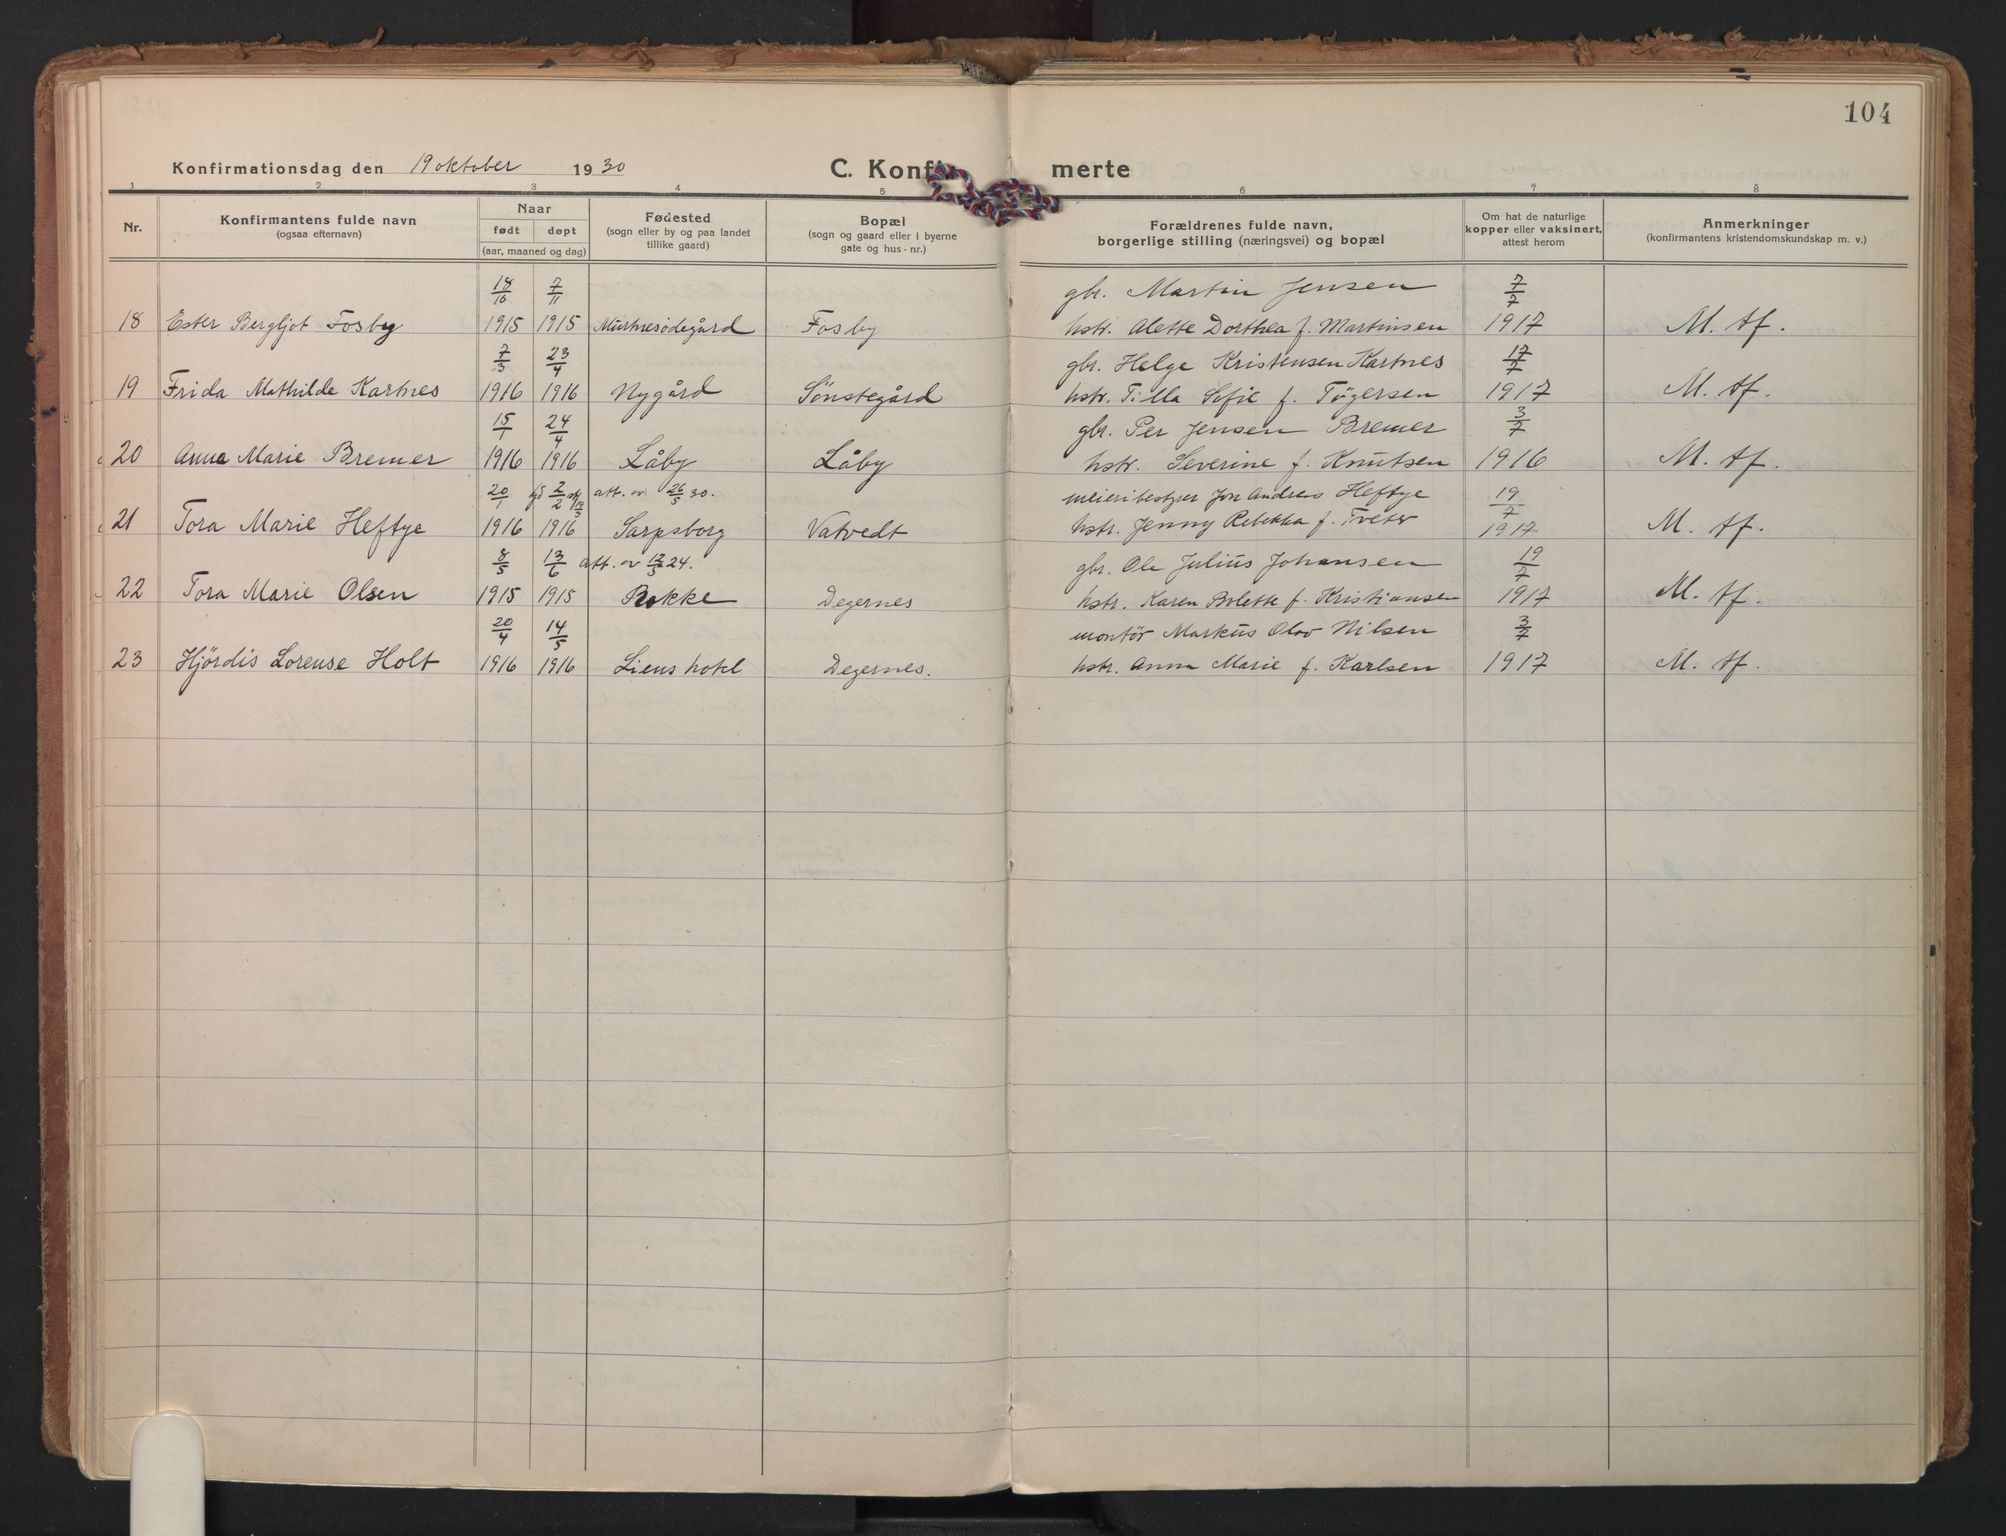 104
Konfirmationsdag den 19 oktober 1930
C. Konfi merte
1 2 3 4 5 6 7 8
Nr.
Konfirmantens fulde navn
(ogsaa efternavn)
Naar
født døpt
(aar, maaned og dag)
Fødested
(sogn eller by og paa landet
tillike gaard)
Bopæl
(sogn og gaard eller i byerne
gate og hus-nr.)
Forældrenes fulde navn,
borgerlige stilling (næringsvei) og bopæl
Om hat de naturlige
kopper eller vaksinert,
attest herom
Anmerkninger
(konfirmantens kristendomskundskap m. v.)
18/10 7/11 gbr. Martin Jensen 7/7
18 Ester Bergljot Fosby 1915 1915 Murtnesødegård Fosby hstr. Alette Dorthea f. Martinsen 1917 M. tf.
7/3 23/4 gbr. Helge Kristensen Kartnes 17/7
19 Frida Mathilde Kartnes 1916 1916 Nygård Sønstegård hstr. Tilla Sofie f. Tøgersen 1917 M. tf.
15/1 24/4 gbr. Per Jensen Bremer 3/7
20 Anna Marie Bremer 1916 1916 Låby Låby hstr. Severine f. Knutsen 1916 M. tf.
20/1 2/2 att. av 26/5 30. meieribestyrer Jon Andreas Heftye 19/7
21 Tora Marie Heftye 1916 1916 Sarpsborg Vatvedt hstr. Jenny Rebekka f. Tveter 1917 M. tf.
8/5 13/6 att. av 12/3 24. gbr. Ole Julius Johansen 19/7
22 Tora Marie Olsen 1915 1915 Rokke Degernes hstr. Karen Bolette f. Kristiansen 1917 M. tf.
20/4 14/5 montør Markus Olav Nilsen 3/7
23 Hjördis Lorense Holt 1916 1916 Liens hotel Degernes. hstr. Anna Marie f. Karlsen 1917 M. tf.